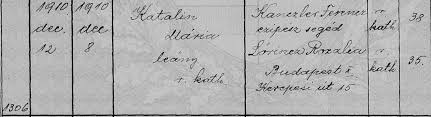 1910 1910 Katalin Kanczler Ferencz r. 38.
dec. dec. Mária czipész segéd kath
12 8 leány Lőrincz Rozália r. 35.
r. kath. Budapest X kath
Kerepesi út 15
1306